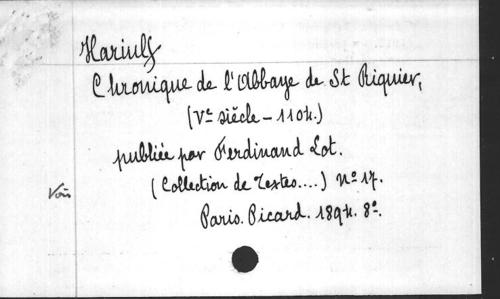 Hariulf
Chronique de l'Abbaye de St Riquier,
(Ve siècle - 1104.)
publiée par Ferdinand Lot.
(Collection de Textes....) No 17.
Voir
Paris. Picard. 1894. 8o.